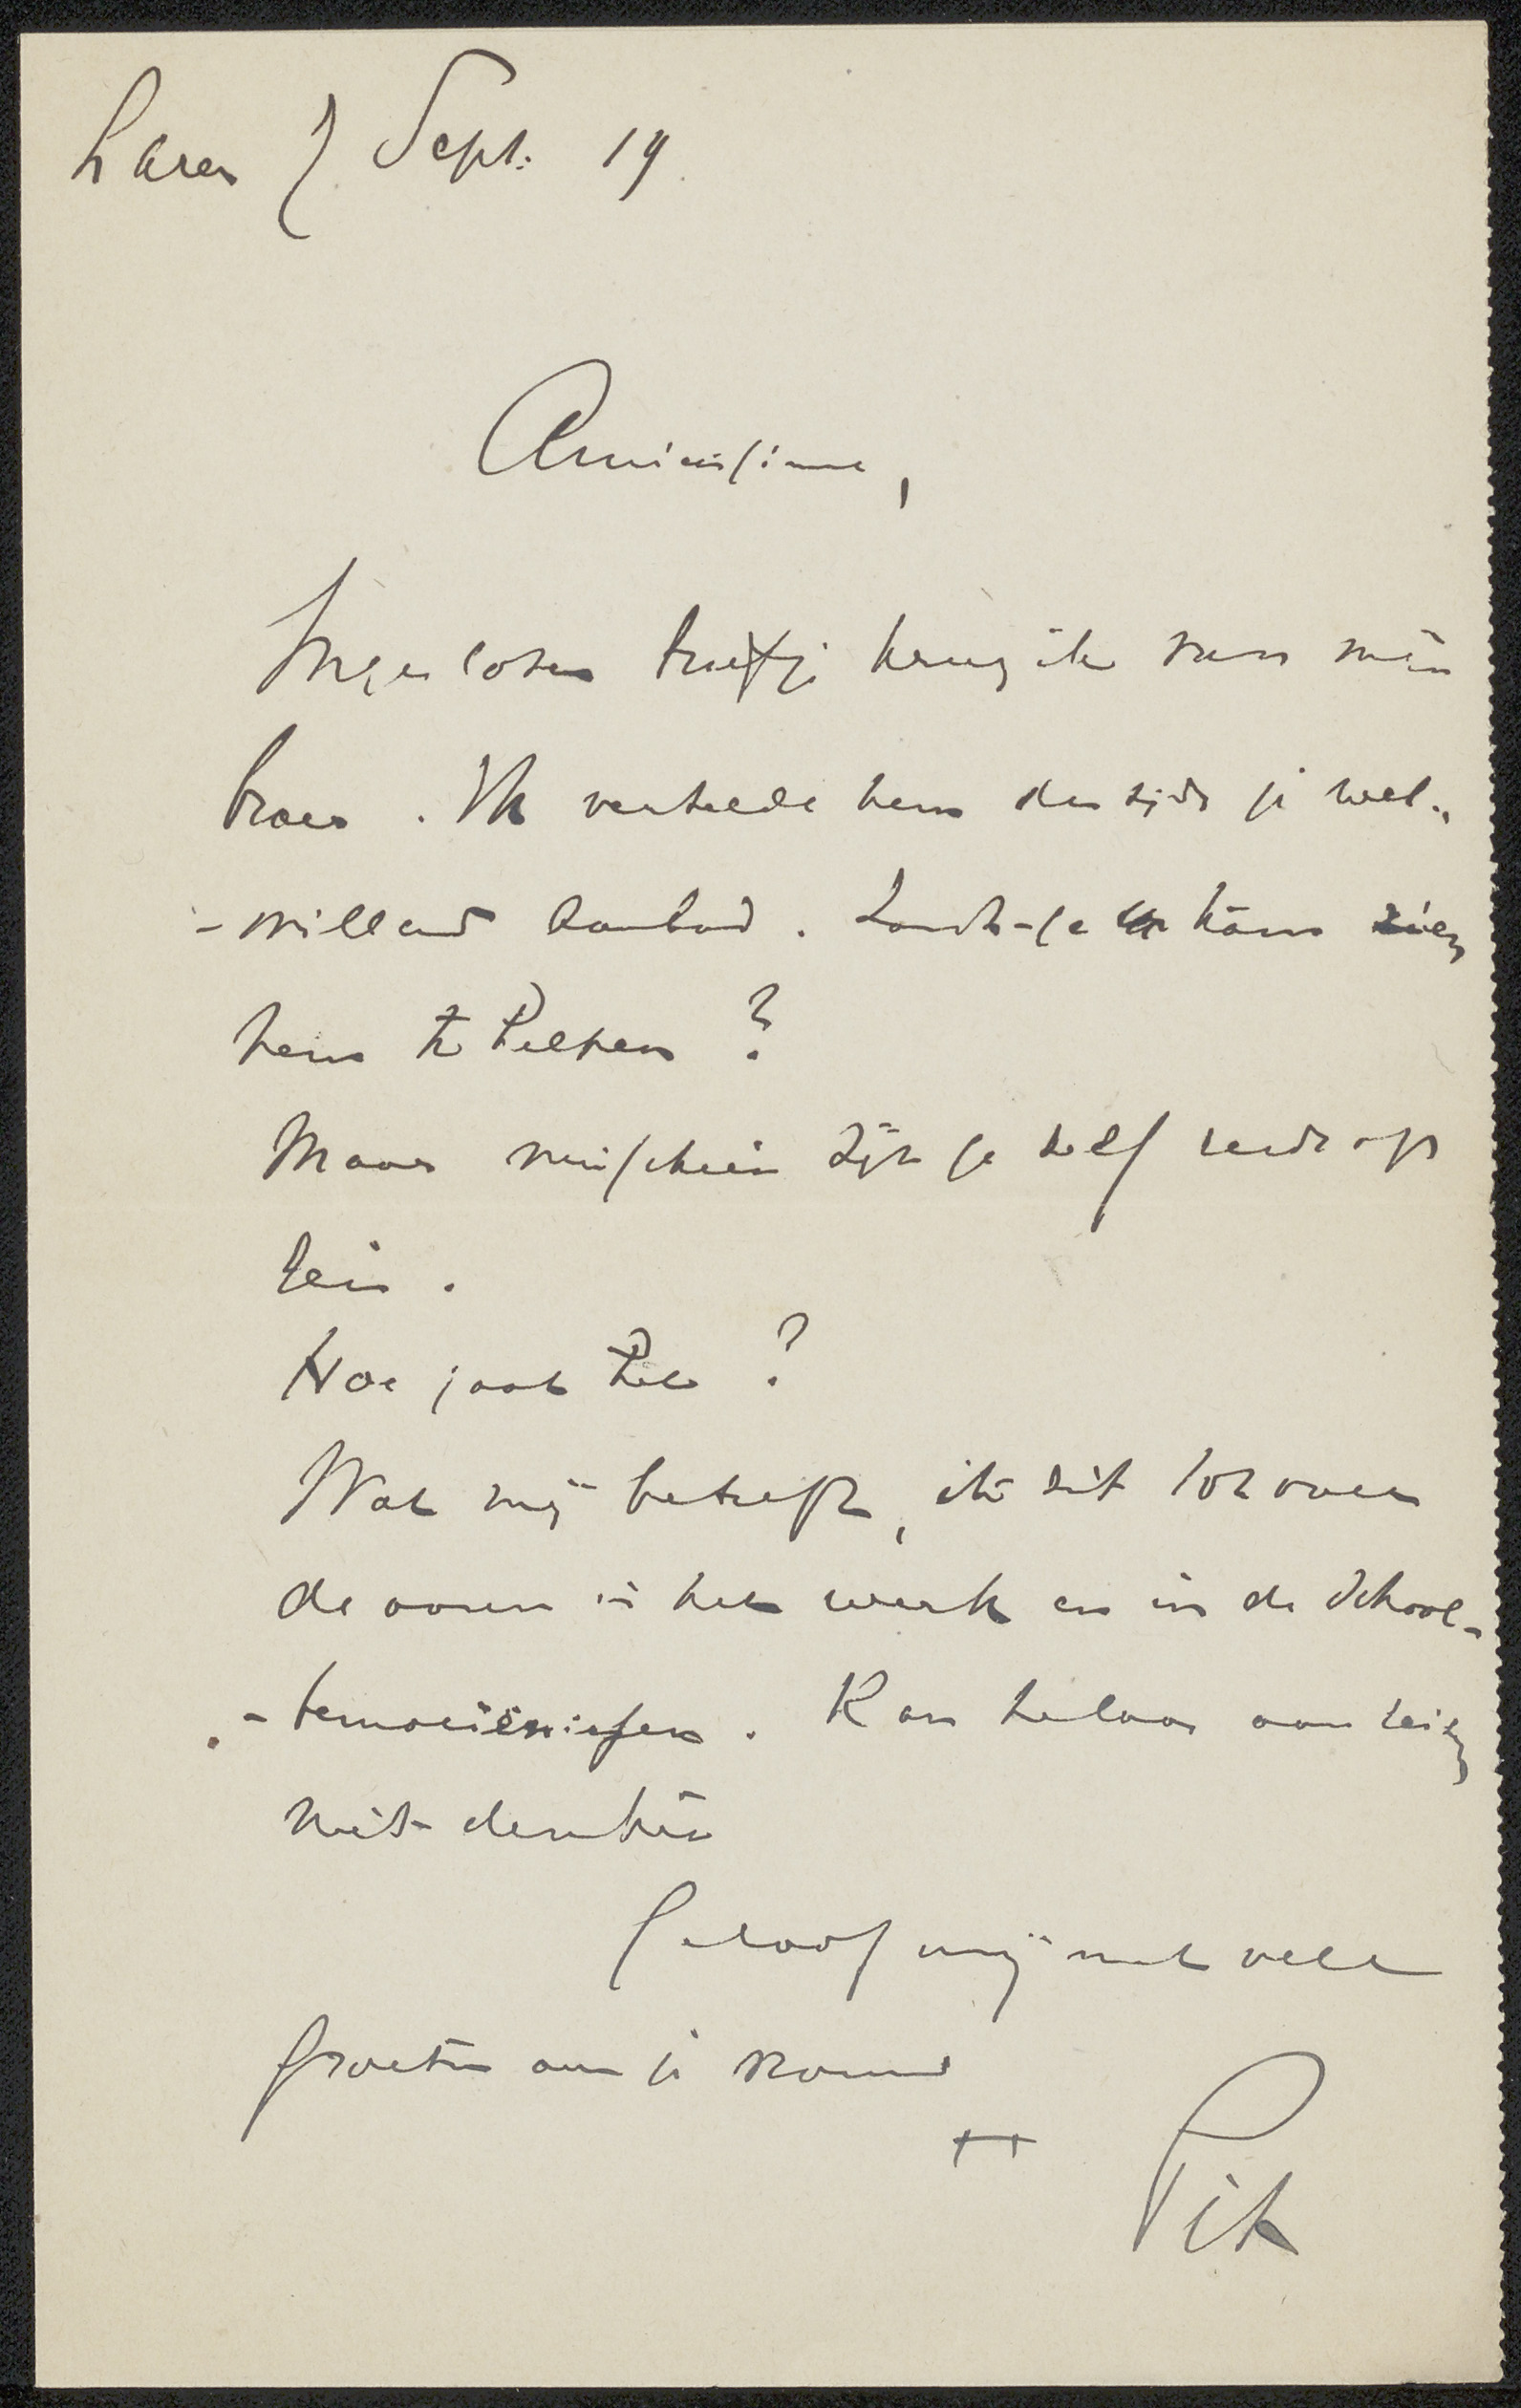 Laren 7 Sept. 19.
Amicissime,
Ingesloten briefje kreeg ik van mijn
broer. Ik vertelde hem der tijds je wel-
-willend aanbod. Zoudt-je kans zien
hem te helpen?
Maar misschien zijt je zelf reeds op
reis.
Hoe gaat het?
Wat mij betreft, ik zit tot over
de ooren in het werk en in de School-
-bemoeiïenissen. Kan helaas aan reizen
niet denken
Geloof mij met vele
groeten aan je vrouw
tt Pit